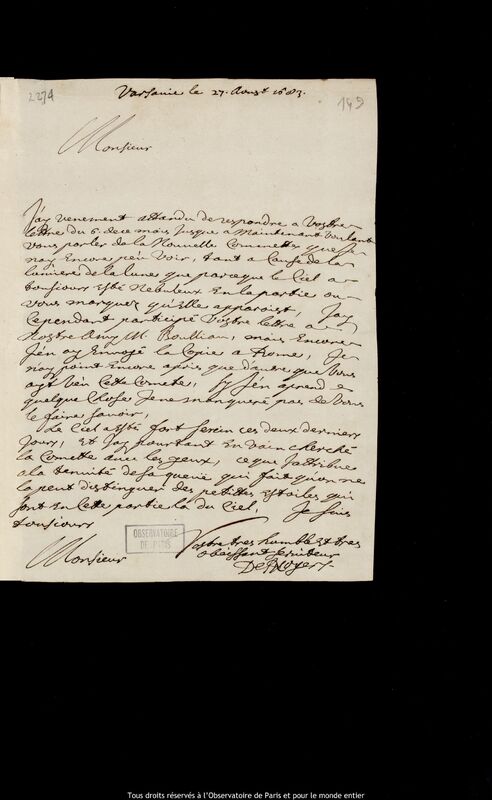 2274
149
Varsavie le 27. Aoust 1683.
Monsieur
J'ay venement attandu de respondre a Vostre
lettre du 6. de ce mois jusque a Maintenant voulant
Vous parler de la Nouvelle Commette que Je
nay Encore peu Voir, tant a Cause de la
lumiere de la lune que parceque le Ciel a
tousjours esté Nebuleux En la partie ou
Vous marquez qu'elle apparoist, J'ay
Cependant participé Vostre lettre a
Nostre Amy M. Boulliau, mais Encore
J'en ay Envoyé la Copie a Rome, Je
nay point Encore apris que d'autre que Vous
ayt Veu Cette Comete, sy J'en aprend
quelque Chose Je ne manqueré pas de Vous
le faire savoir,
Le Ciel a esté fort serein ces deux derniers
Jours, Et J'ay pourtant En vain cherché
la Comette avec les yeux, ce que J'attribue
a la tenuité de sa queue qui fait quon ne
la peut distinguer des petittes Estoiles qui
sont En Cette partie la du Ciel, Je suis
tousjours
Monsieur
Vostre tres humble Et tres
obeissant serviteur
Des Noyers.
OBSERVATOIRE
DE PARIS
Tous droits réservés à l'Observatoire de Paris et pour le monde entier